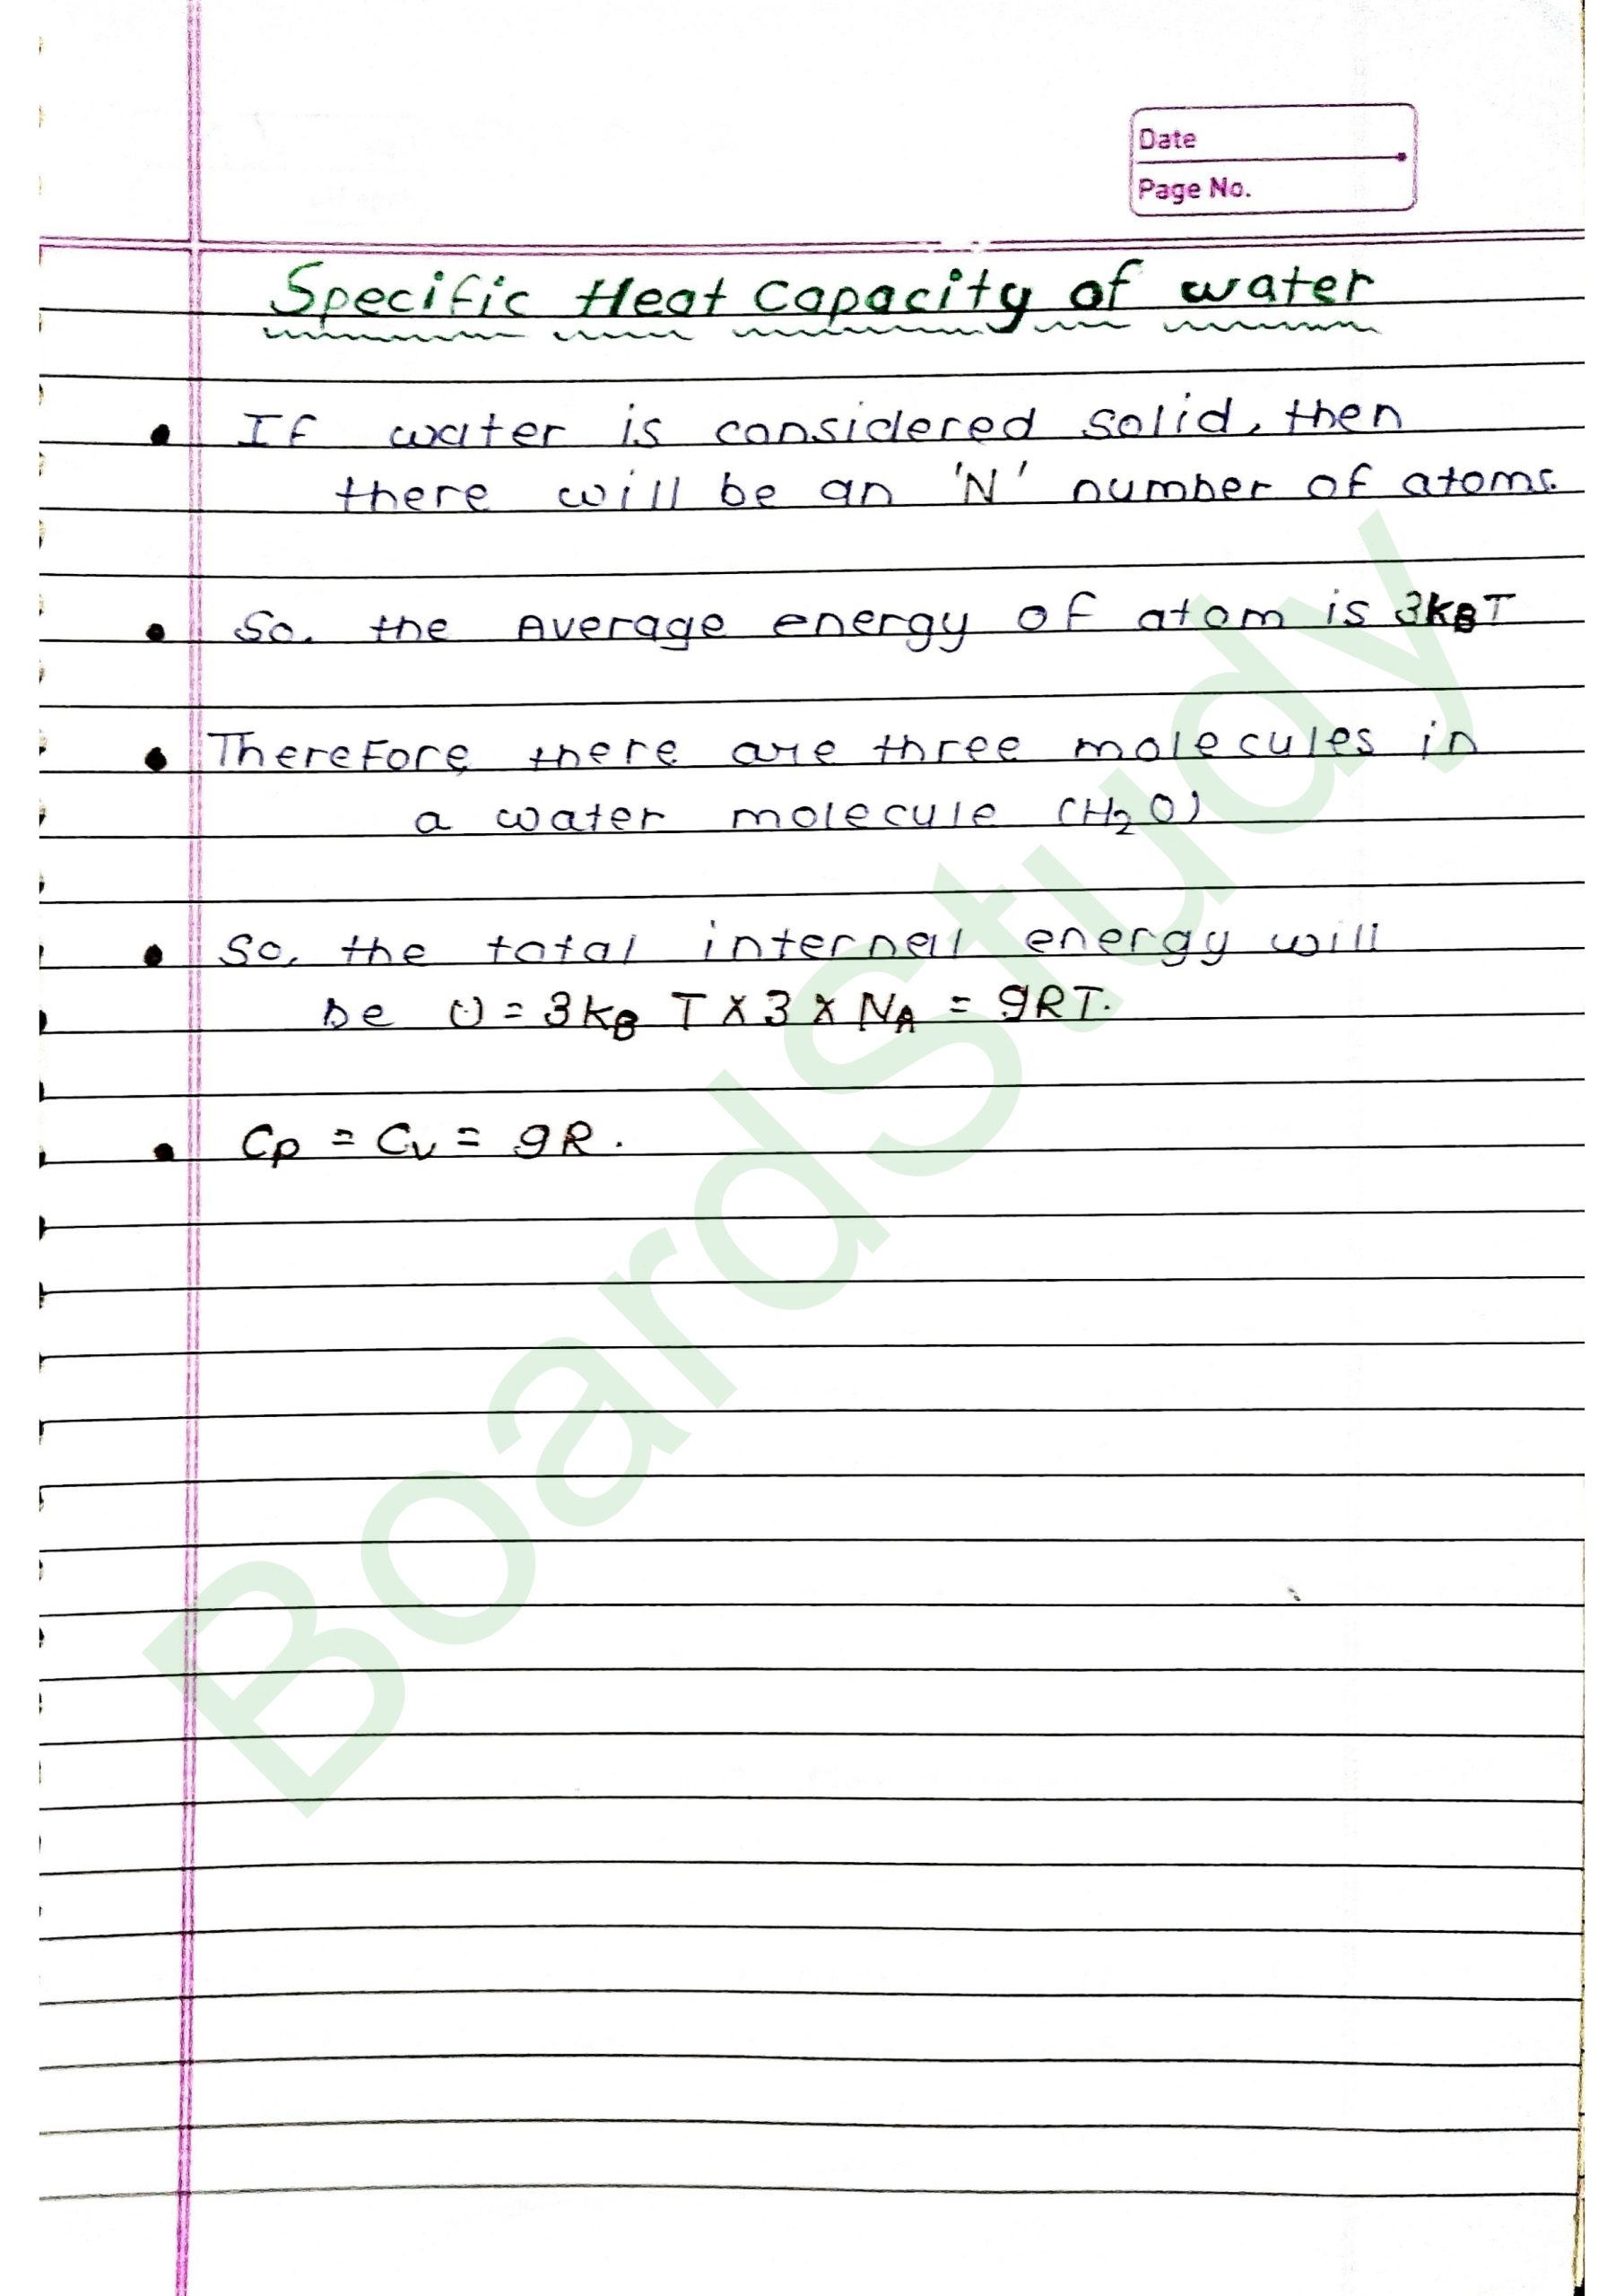 Date
Page No.
Specific Heat Capacity of water
• If water is considered solid, then
there will be an 'N' number of atoms.
• So, the Average energy of atom is 3kBT
• Therefore there are three molecules in
a water molecule (H₂O)
• So, the total internal energy will
be U = 3kB T x 3 x NA = 9RT.
• Cp = Cv = 9R.
BoardStudy